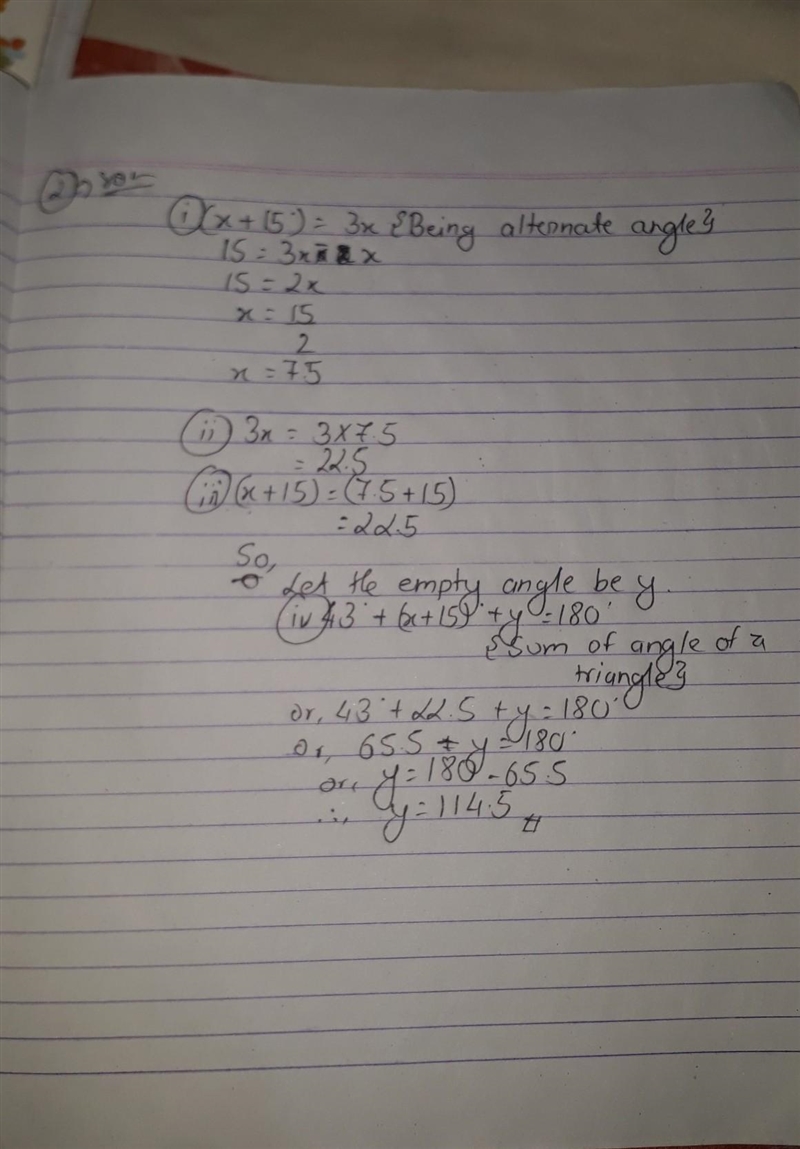 2) Soln
i) (x + 15°) = 3x {Being alternate angle}
15 = 3x - x
15 = 2x
x = 15
2
x = 7.5
ii) 3x = 3×7.5
= 22.5
iii) (x + 15) = (7.5 + 15)
= 22.5
So,
Let the empty angle be y.
iv) 43° + (x + 15)° + y = 180°
{Sum of angle of a
triangle}
or, 43° + 22.5 + y = 180°
or, 65.5 + y = 180°
or, y = 180 - 65.5
∴, y = 114.5 #